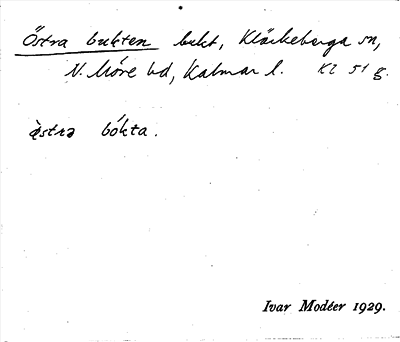 Östra bukten bukt, Kläckeberga sn,
N. Möre hd, Kalmar l. Kz 51 g.
östrə bókta.
Ivar Modéer 1929.